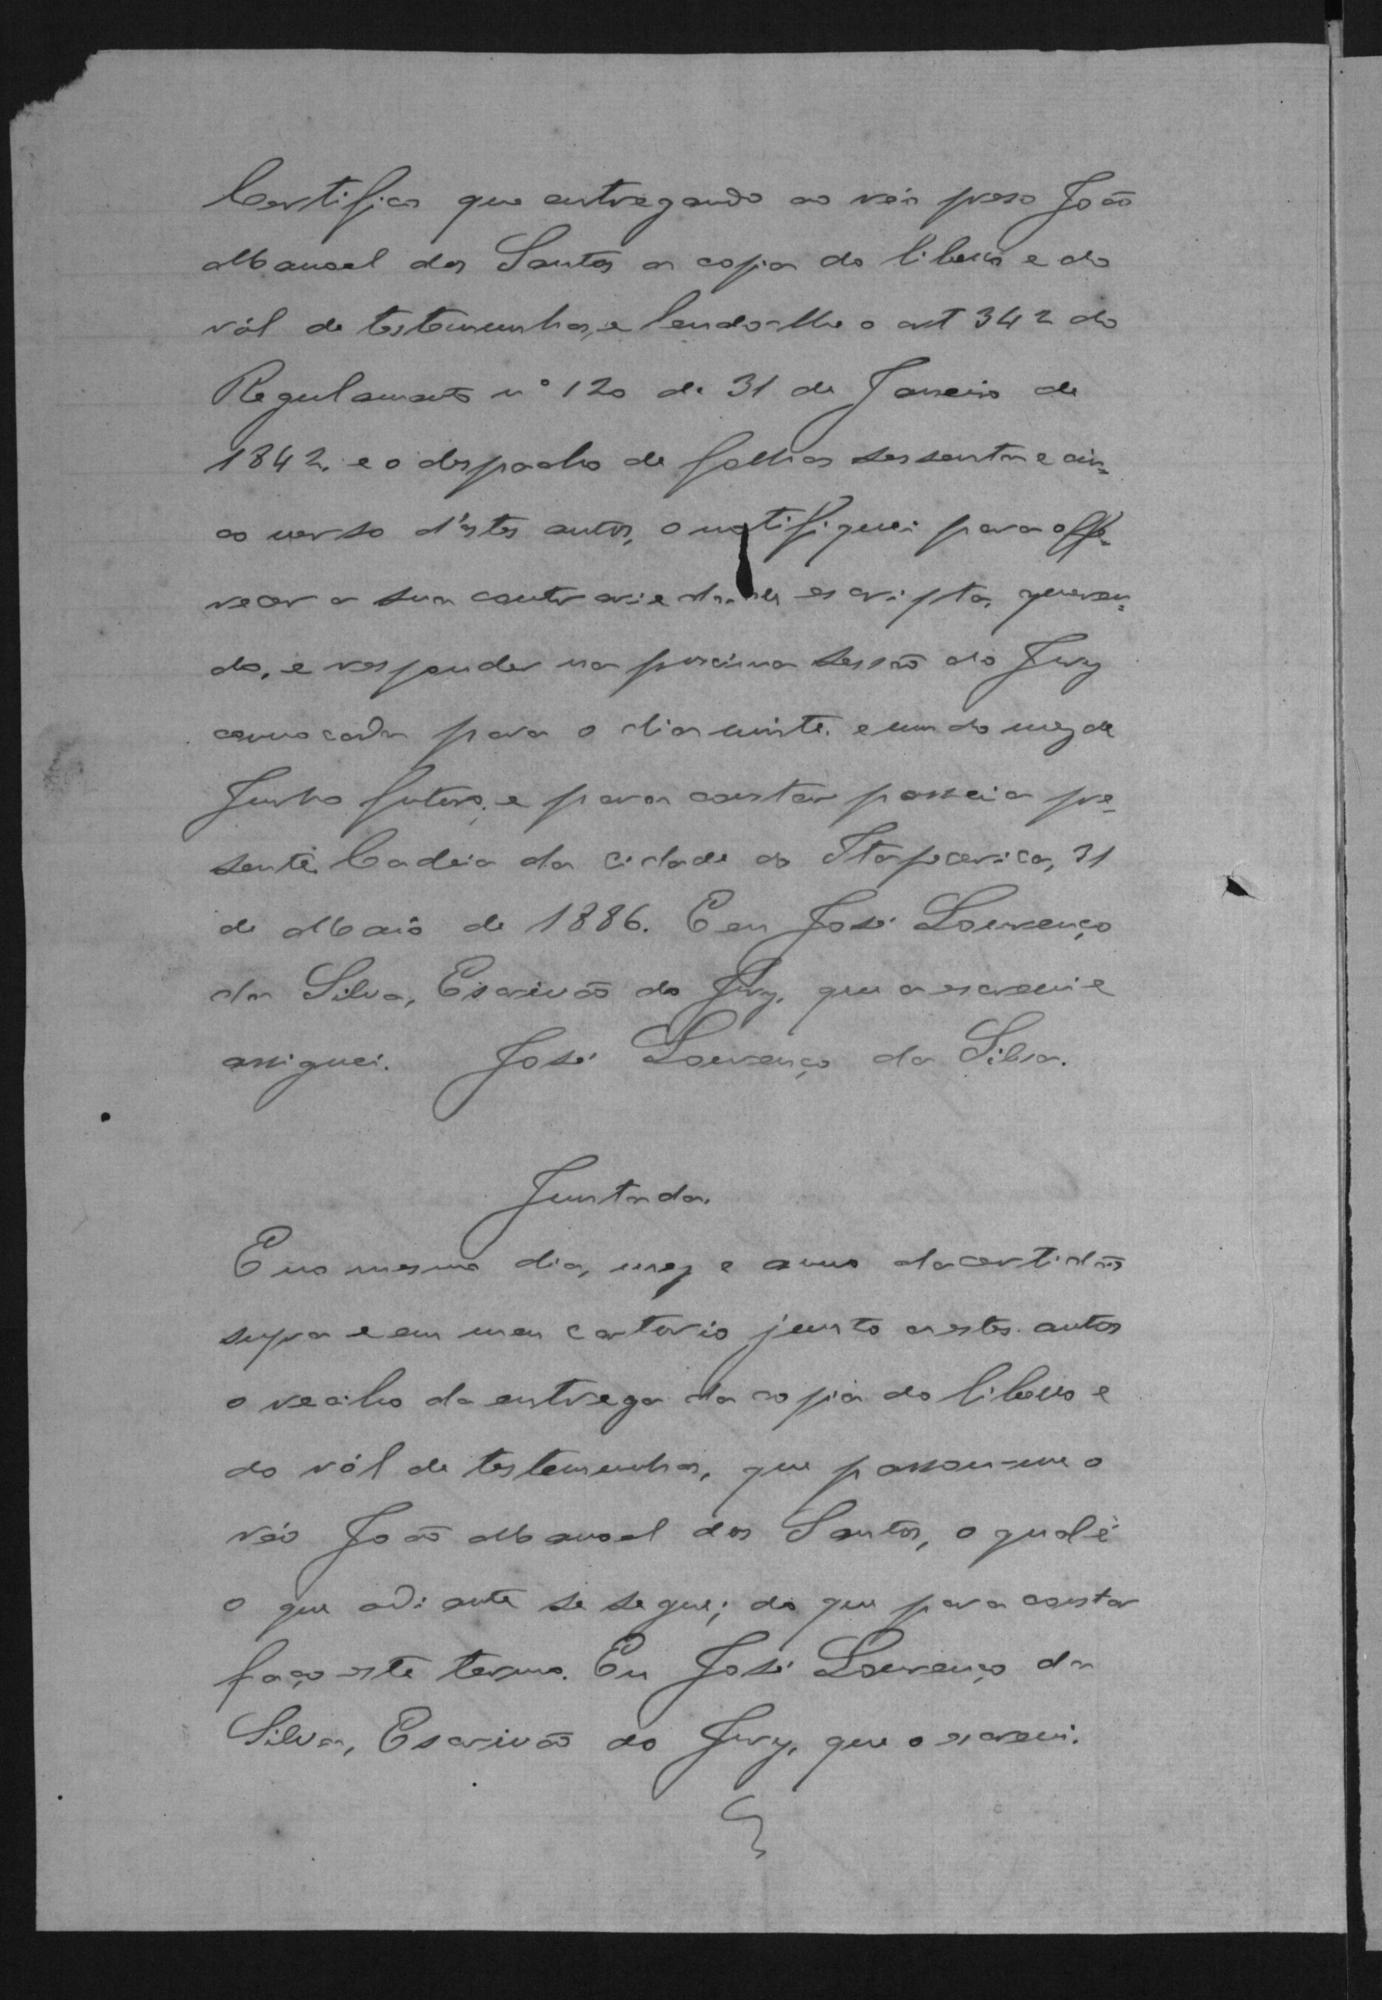 Certifico que entregando ao réo preso João
Manoel dos Santos a copia do libello e do
ról de testemunhas, e lendo-lhe o art 342 do
Regulamento nº 120 de 31 de Janeiro de
1842, e o despacho de folhas sessenta e cin-
co verso d'estes autos, o notifiquei para offe-
recer a sua contrariedade escripta, queren-
do, e responder na proxima sessão do Jury
convocada para o dia vinte e um do mez de
Junho futuro, e para constar passei a pre-
sente. Cadeia da cidade do Itapecerica, 31
de Maio de 1886. E eu José Lourenço
da Silva, Escrivão do Jury, que a escrevi e
assignei. José Lourenço da Silva.
Juntada.
E no mesmo dia, mez e anno da certidão
supra e em meu cartorio junto a estes autos
o recibo da entrega da copia do libello e
do ról de testemunhas, que passou-me o
réo João Manoel dos Santos, o qual é
o que adiante se segue; do que para constar
faço este termo. Eu José Lourenço da
Silva, Escrivão do Jury, que o escrevi.